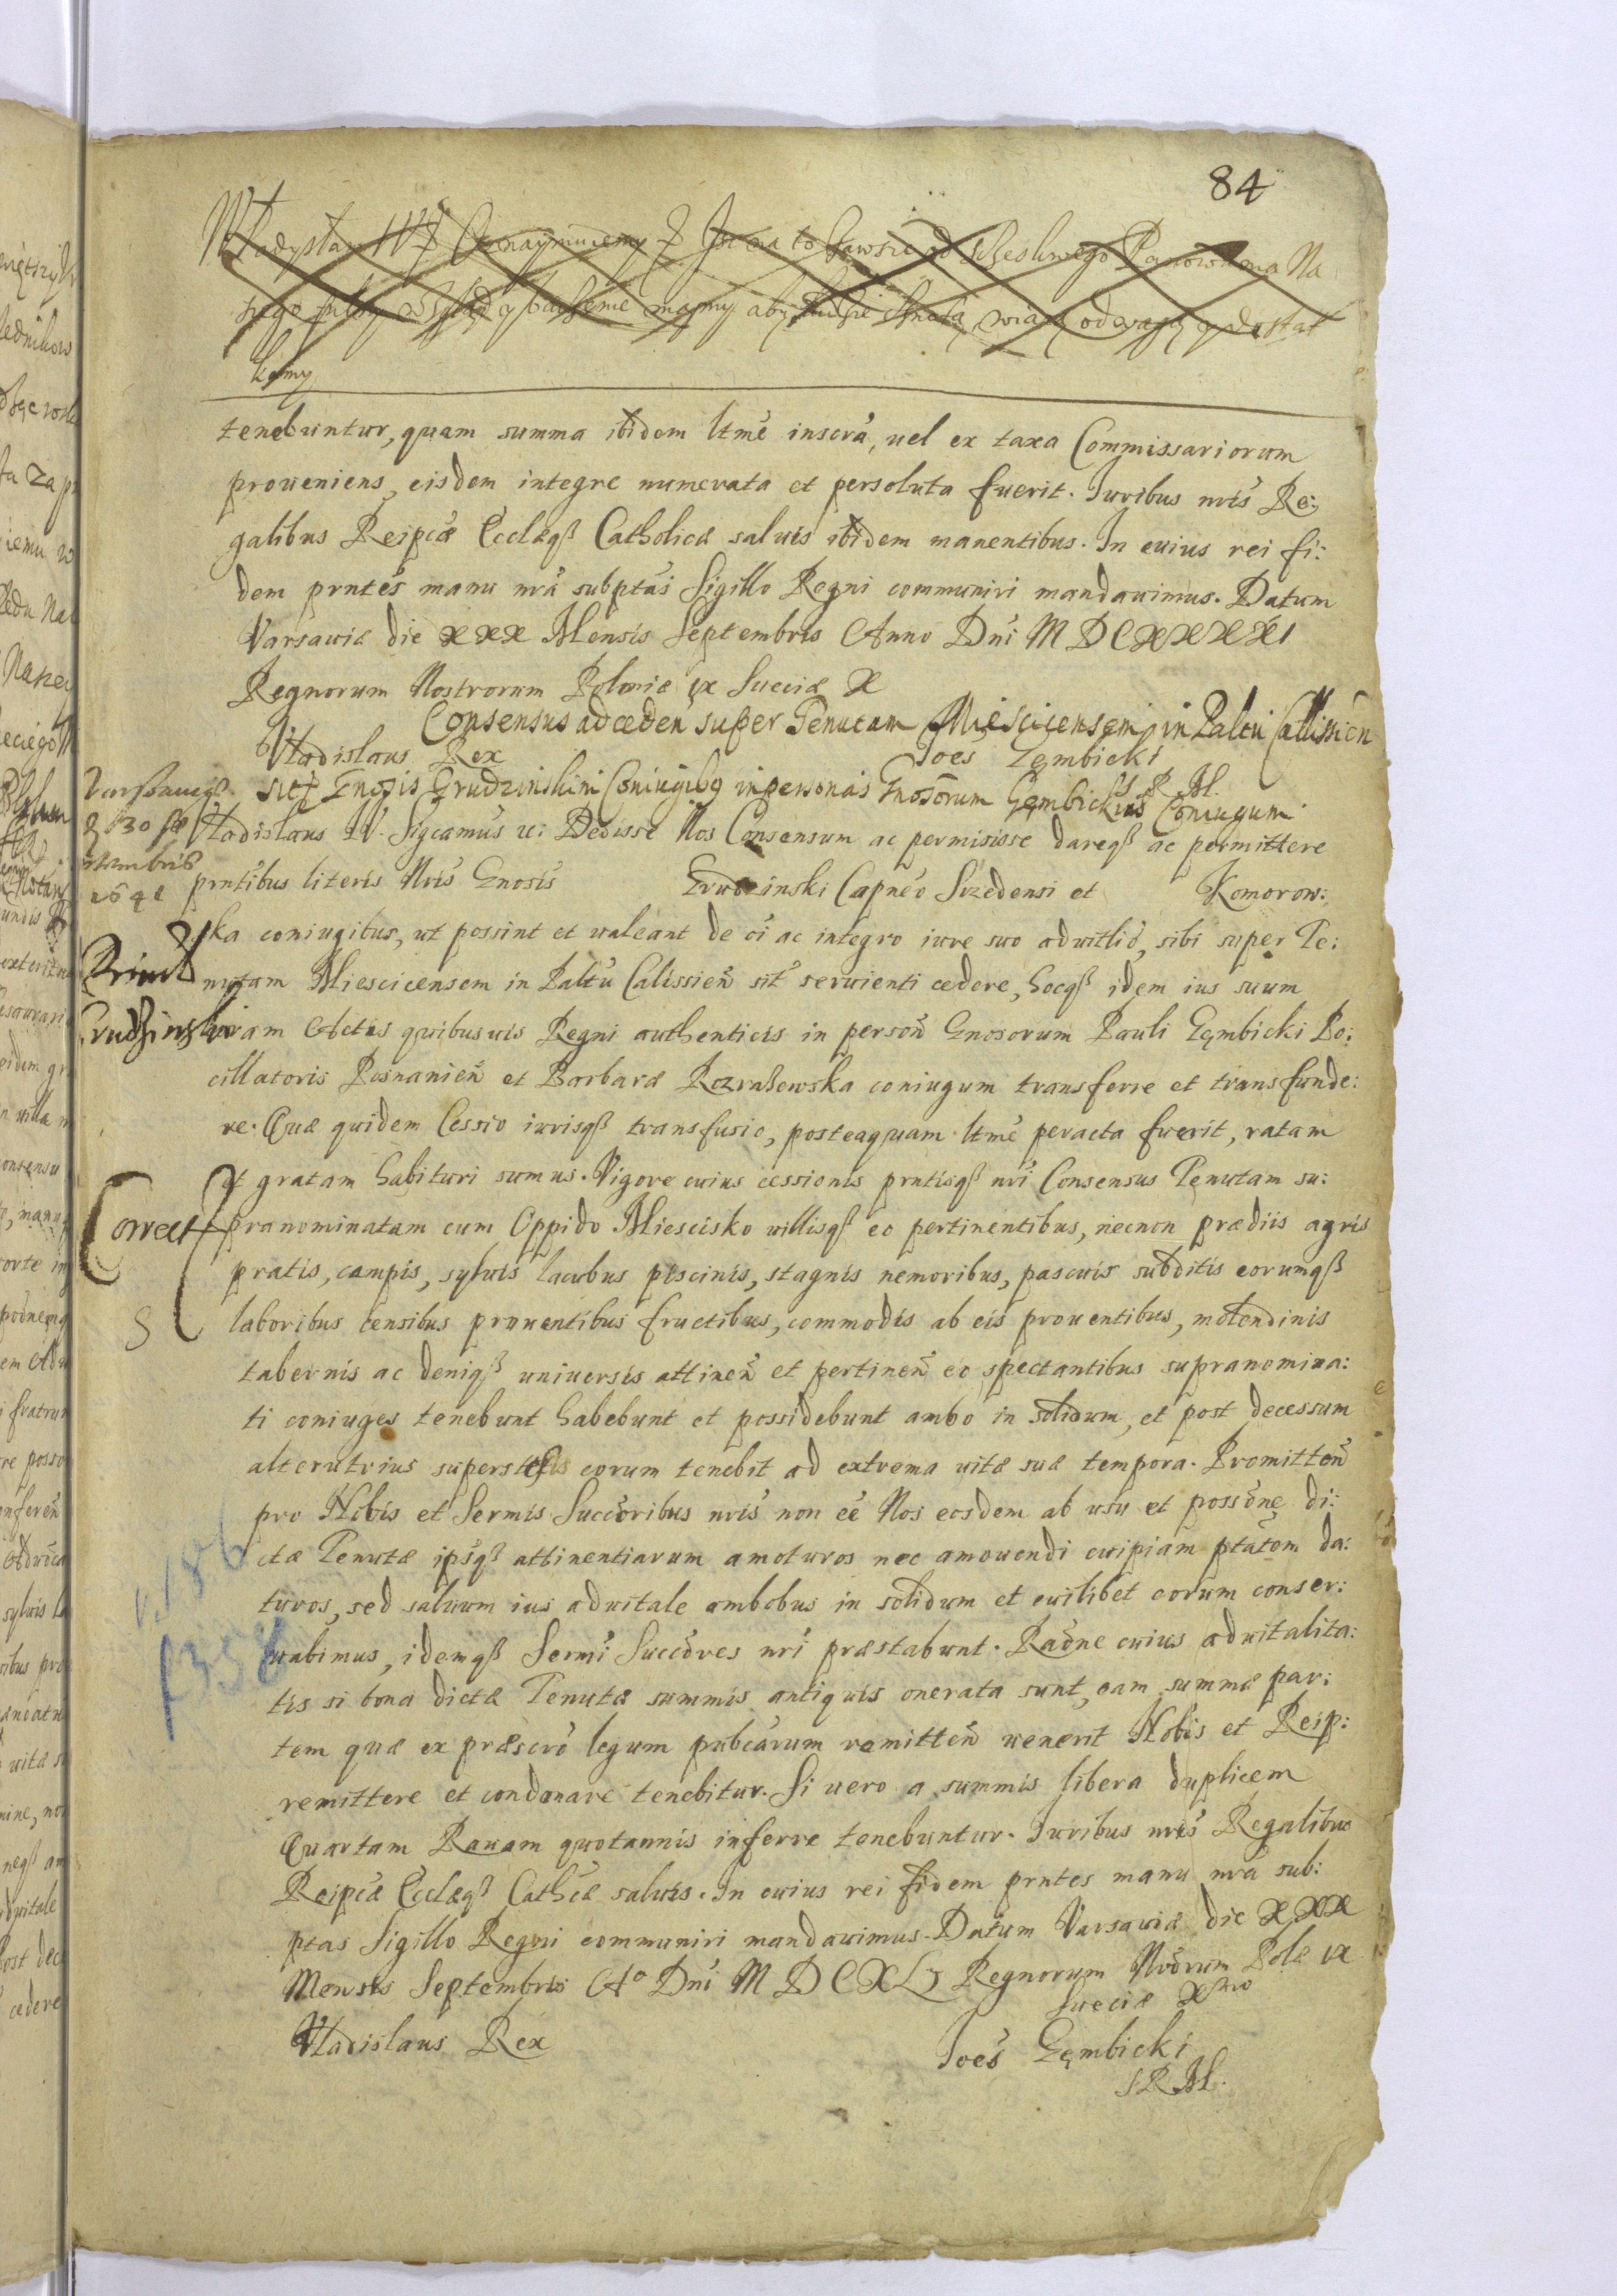 84
Władysław IV Oznaymuiemy Iż na to Panowania Na
szego mamy aby
kamy
tenebuntur, quam summa ibidem ltmé inscrá, uel ex taxa Commissariorum
proueniens, eisdem integre numerata et persoluta fuerit. Iuribus nris Re:
galibus Reipcæ Ecclæqß Catholicæ saluis ibidem manentibus. In cuius rei fi:
dem prntes manu nrá subptas Sigillo Regni communiri mandauimus. Datum
Varsauiæ die XXX Mensis Septembris Anno Dni MDCXXXXI
Regnorum Nostrorum Poloniæ IX Sueciæ X
Vladislaus Rex
Ioes Gembicki
S R M.
Consensus ad cedeñ super Tenutam Miescicensem in Paltu Calissien
sitt Gnosis Grudzinskim Coniugibg in personas Gnosorum Gembickius Coniugum
Vladislaus IV. Sigcamus &c: Dedisse Nos Consensum ac permisisse dareqß ac permittere
prntibus literis Nris Gnosis Grudzinski Capneo Srzedensi et Komorow:
ska coniugibus, ut possint et ualeant de oi ac integro iure suo aduitlio, sibi super Te:
nutam Miescicensem in Paltu Calissień sit seruienti cedere, hocqß idem ius suum
coram Actis quibusuis Regni authenticis in persoñ Gnosorum Pauli Gembicki Po:
cillatoris Posnanień et Barbaræ Rozrażewska coniugum transferre et transfunde:
re. Quæ quidem Cessio iurisqß transfusio, posteaquam ltmé peracta fuerit, ratam
et gratam habituri sumus. Vigore cuius cessionis prntisqß nri Consensus Tenutam su:
pranominatam cum Oppido Miescisko uillisqß eo pertinentibus, necnon prædiis agris
pratis, campis, syluis lacubus piscinis, stagnis nemoribus, pascuis subditis eorumqß
laboribus censibus prouentibus fructibus, commodis ab eis prouentibus, molendinis
tabernis ac deniqß uniuersis attineñ et pertineñ eo spectantibus supranomina:
ti coniuges tenebunt habebunt et possidebunt ambo in solidum, et post decessum
alterutrius superstes eorum tenebit ad extrema uitæ suæ tempora. Promitteñ
pro Nobis et Sermis Succoribus nris non eé Nos eosdem ab usu et possone di:
ctæ Tenutæ ipsqß attinentiarum amoturos nec amouendi cuipiam ptatem da:
turos, sed saluum ius aduitale ambobus in solidum et cuilibet eorum conser:
uabimus, idemqß Sermi Succores nri præstabunt. Raone cuius aduitalita:
tis si bona dictæ Tenutæ summis antiquis onerata sunt, eam summæ par:
tem quæ ex præscro legum pubcarum remitteñ uenerit Nobis et Reip:
remittere et condonare tenebitur. Si uero a summis libera duplicem
Quartam Rauam quotannis inferre tenebuntur. Iuribus nris Regalibus
Reipcæ Ecclæqß Cathcæ saluis. In cuius rei fidem prntes manu nra sub:
ptas Sigillo Regni communiri mandauimus. Datum Varsauiæ die XXX
Mensis Septembris Aº Dni MDCXLI Regnorum Nrorum Polæ IX
Sueciæ Xmo
Vladislaus Rex
Ioes Gembicki
S R M.
Varssauiæ
d 30 Se
ptembris
1641
Grudzinski
Correct
v. 186
f 358